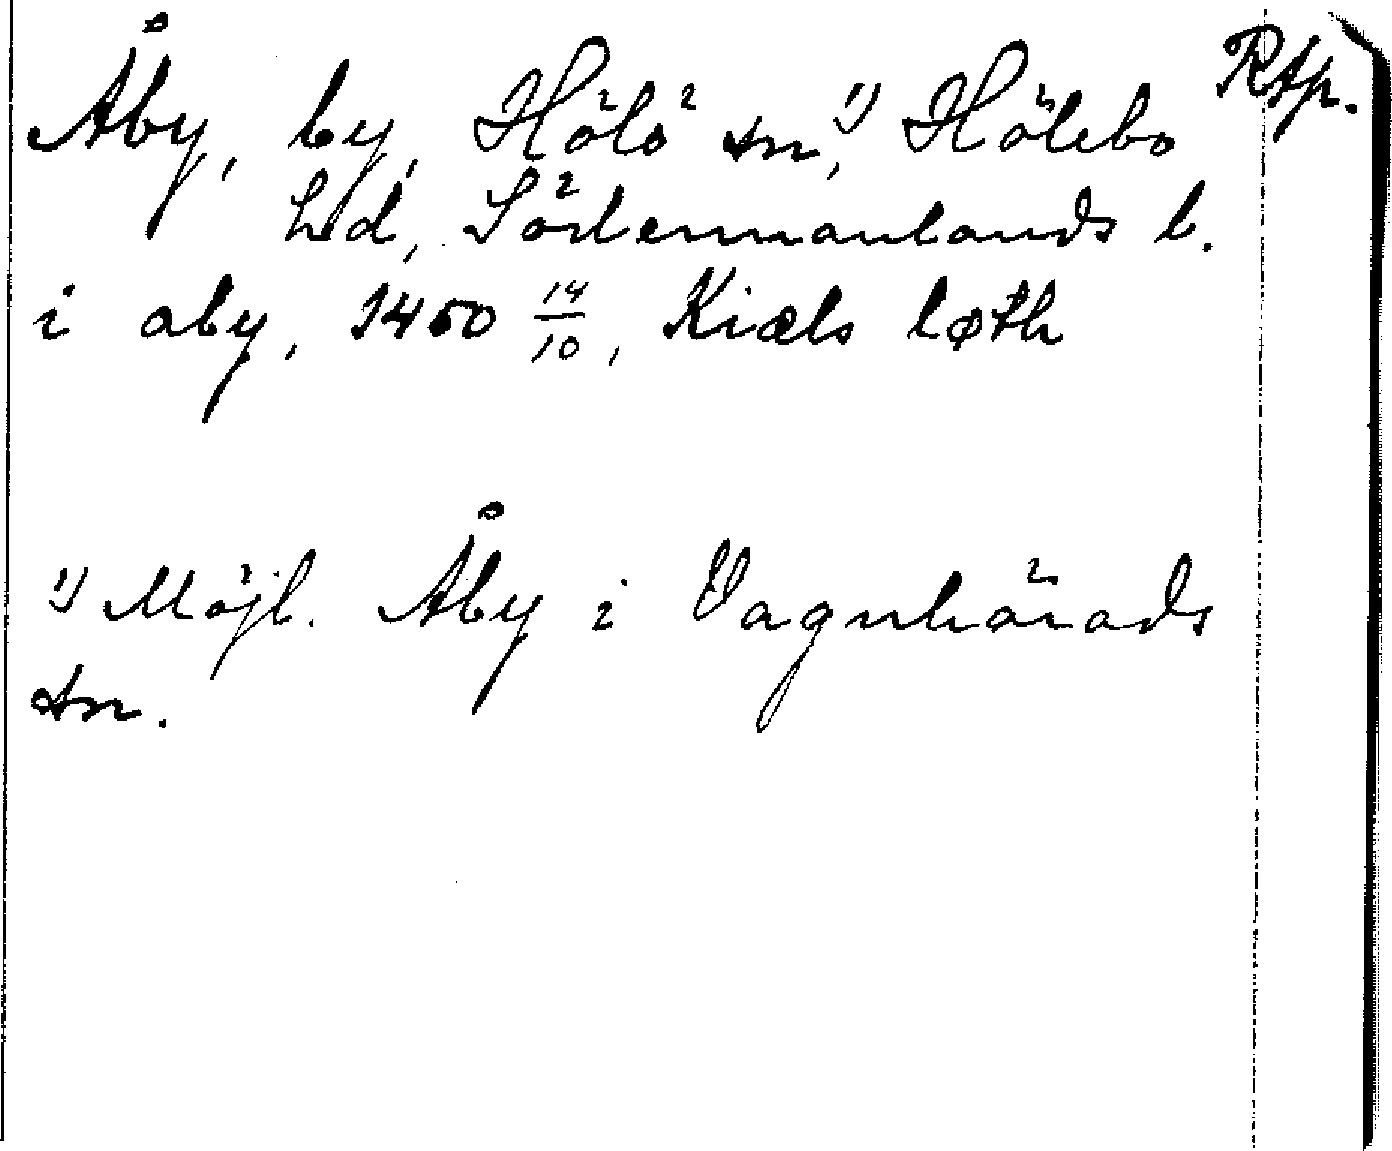 Åby, by, Hölö sn,¹⁾ Hölebo Rtp.
hd, Södermanlands l.
i aby, 1450 14/10, Kiæls løth
¹⁾ Möjl. Åby i Vagnhärads
sn.